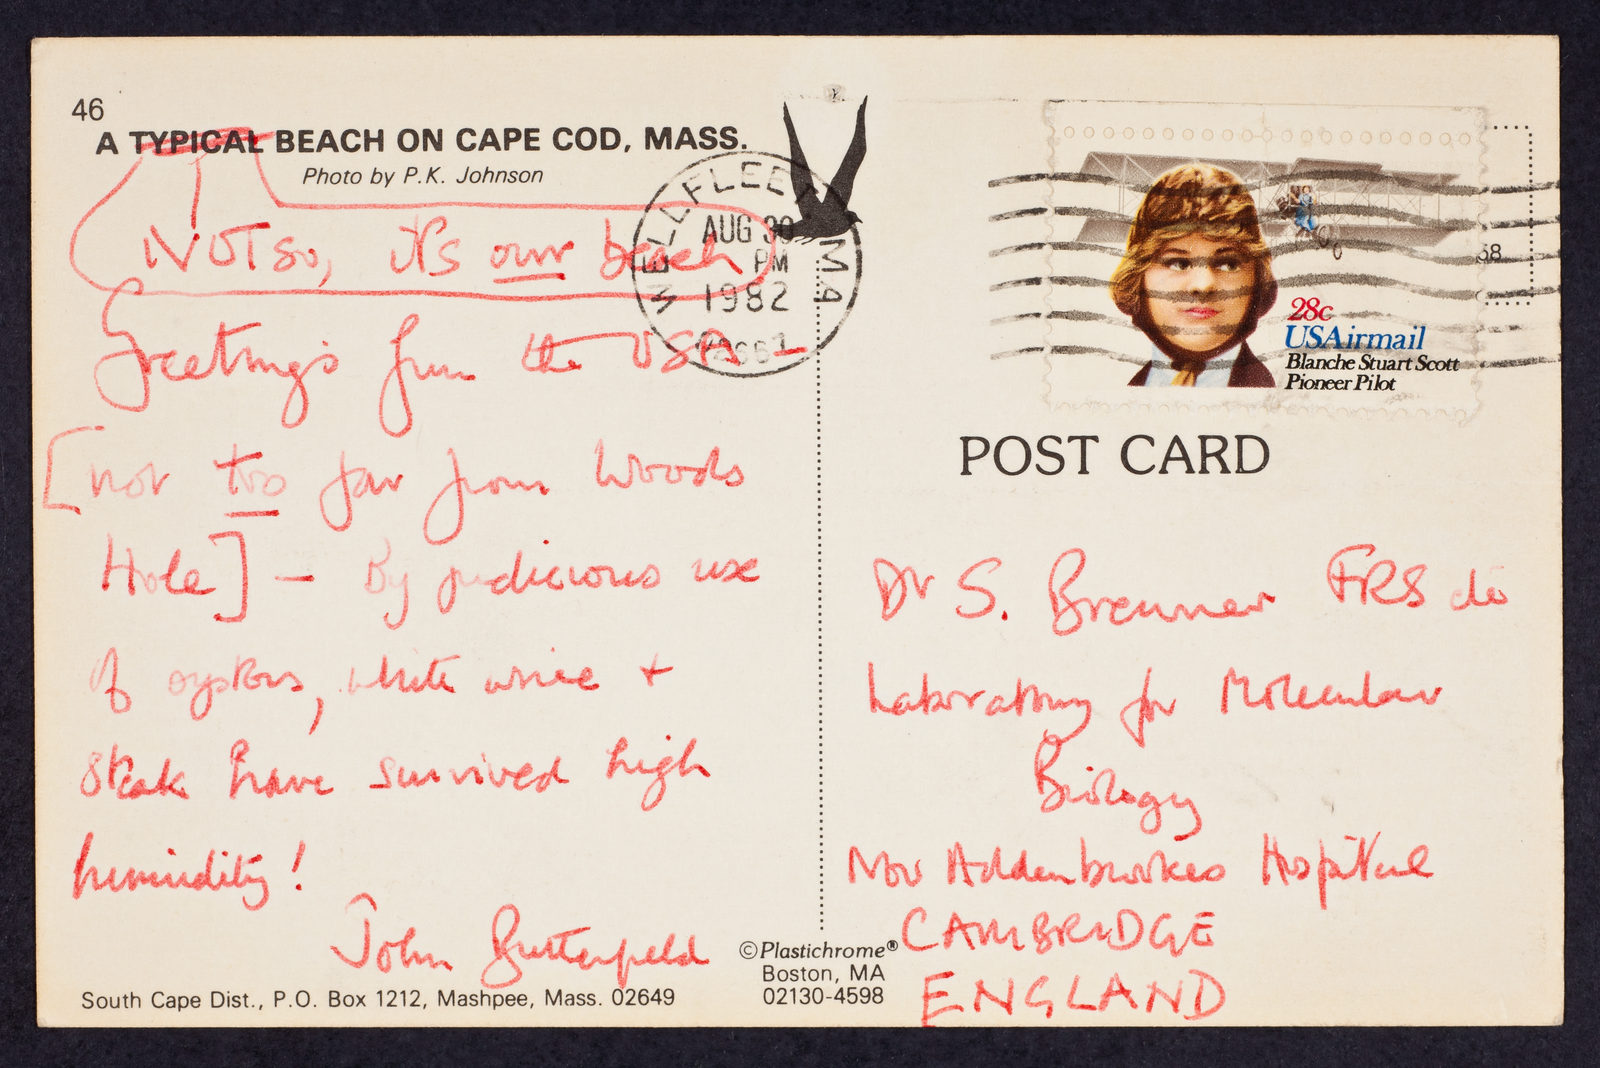 46
A TYPICAL BEACH ON CAPE COD, MASS.
Photo by P.K. Johnson
NOT so, it's our beach
Greetings from the USA –
[not too far from Woods
Hole] – By judicious use
of oysters, white wine +
steak have survived high
humidity!
John Butterfield
South Cape Dist., P.O. Box 1212, Mashpee, Mass. 02649
©Plastichrome®
Boston, MA
02130-4598
WELLFLEET MA
AUG 30
PM
1982
28c
USAirmail
Blanche Stuart Scott
Pioneer Pilot
POST CARD
Dr S. Brenner FRS
Laboratory for Molecular
Biology
Addenbrookes Hospital
CAMBRIDGE
ENGLAND